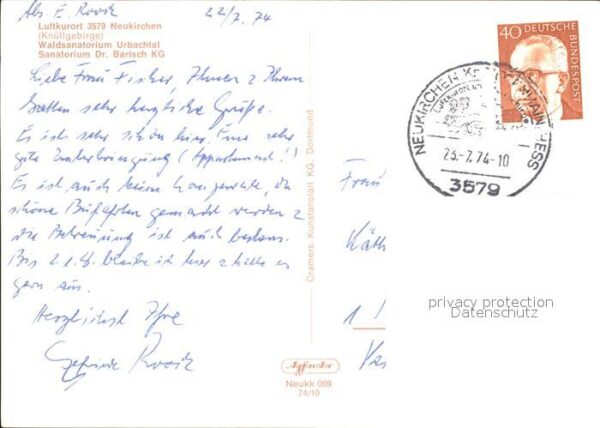 Abs E. Rook 22/7. 74
Luftkurort 3579 Neukirchen
(Knüllgebirge)
Waldsanatorium Urbachtal
Sanatorium Dr. Bartsch KG
Liebe Frau Fischer, Ihnen & Ihrem
Gatten sehr herzliche Grüße.
Es ist sehr schön hier. Eine sehr
gute Unterbringung (Appartement!)
Es ist auch keine Langeweile, da
schöne Busfahrten gemacht werden &
die Betreuung ist auch bestens.
Bis 2. 8. bleibe ich hier & halte es
gern aus.
Herzlichst Ihre
Rook
Cramers Kunstanstalt KG, Dortmund
Neukk 069
74/10
40
DEUTSCHE
BUNDESPOST
NEUKIRCHEN
23.-7.74-10
3579
Frau
Käth
1 !
privacy protection
Datenschutz